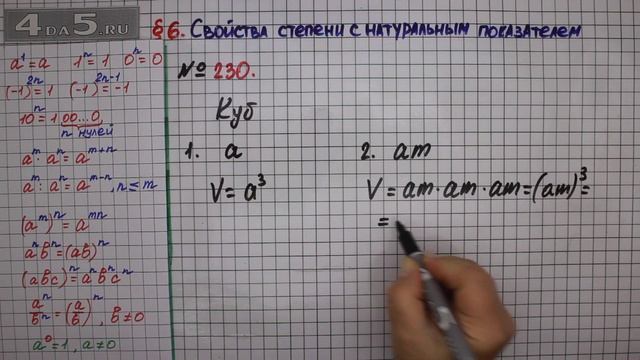 4DA5.RU
§6. Свойства степени с натуральным показателем
a¹=a 1ⁿ=1 0ⁿ=0
(-1)²ⁿ=1 (-1)²ⁿ⁻¹=-1
10ⁿ=1 00...0,
n нулей
aᵐ·aⁿ=aᵐ⁺ⁿ
aᵐ:aⁿ=aᵐ⁻ⁿ, n≤m
(aᵐ)ⁿ=aᵐⁿ
aⁿbⁿ=(ab)ⁿ
(abc)ⁿ=aⁿbⁿcⁿ
aⁿ/bⁿ=(a/b)ⁿ, b≠0
a⁰=1, a≠0
№ 230.
Куб
1. a
V=a³
2. am
V=am·am·am=(am)³=
=